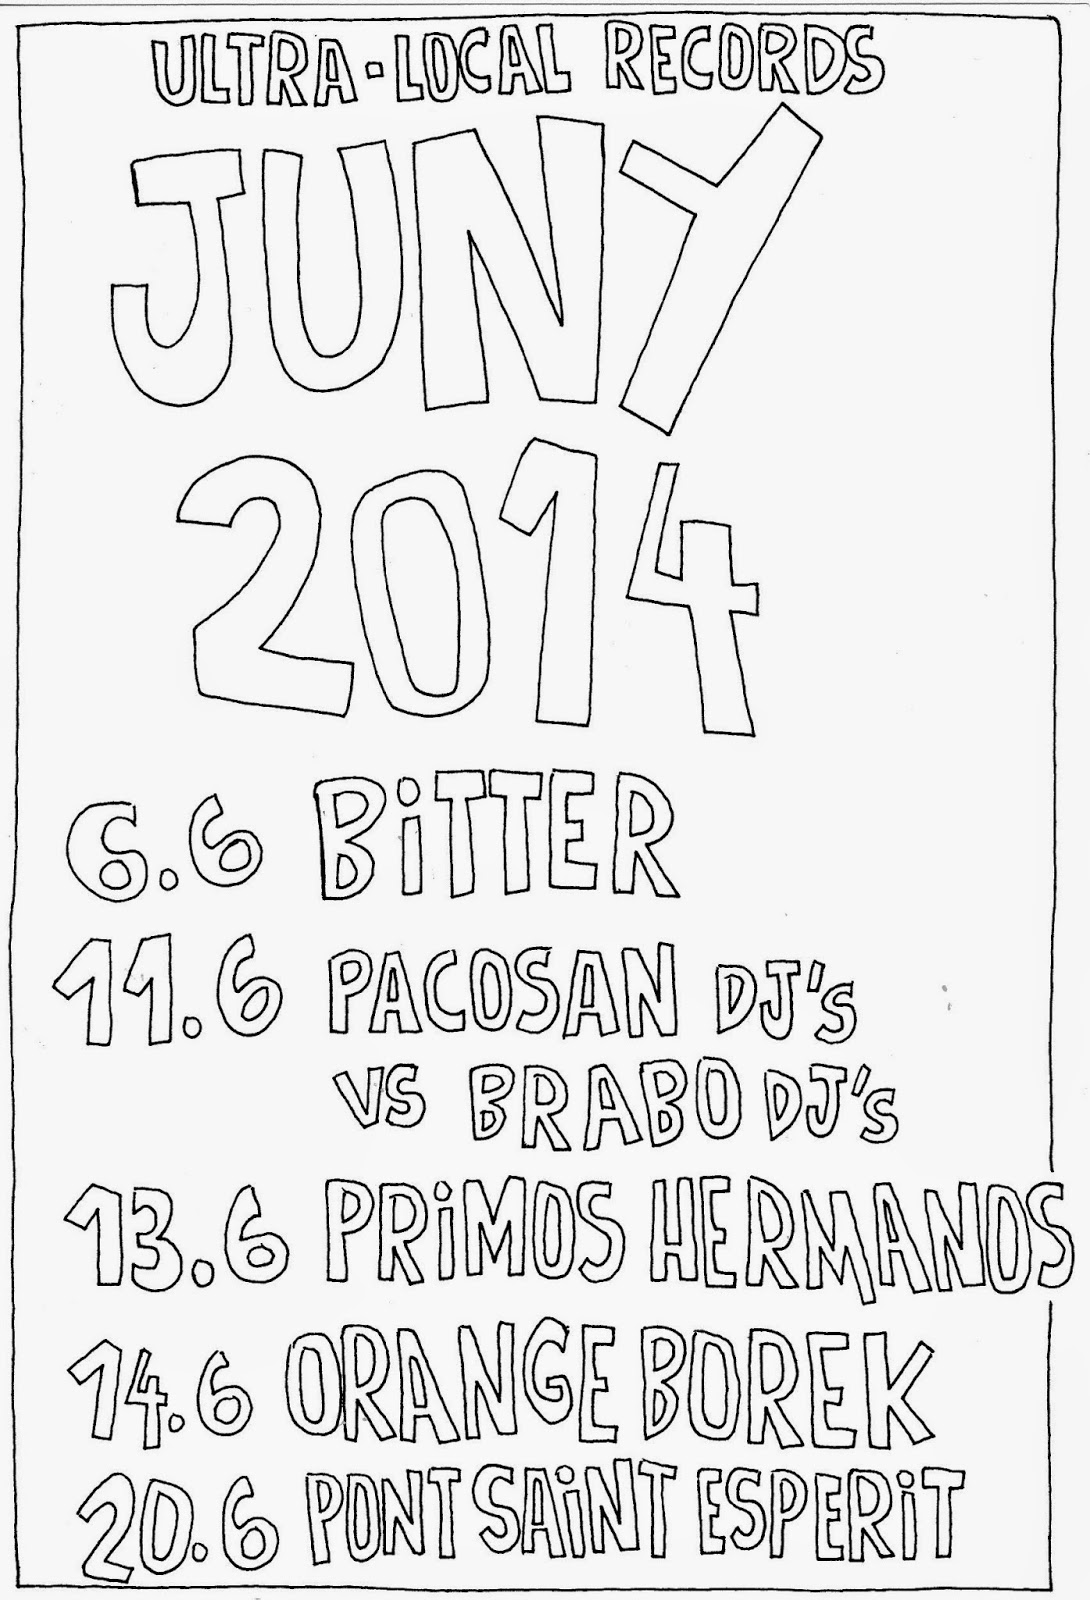 ULTRA-LOCAL RECORDS
JUNY
2014
6.6 BiTTER
11.6 PACOSAN DJ's
VS BRABO DJ's
13.6 PRiMOS HERMANOS
14.6 ORANGE BOREK
20.6 PONT SAiNT ESPERiT